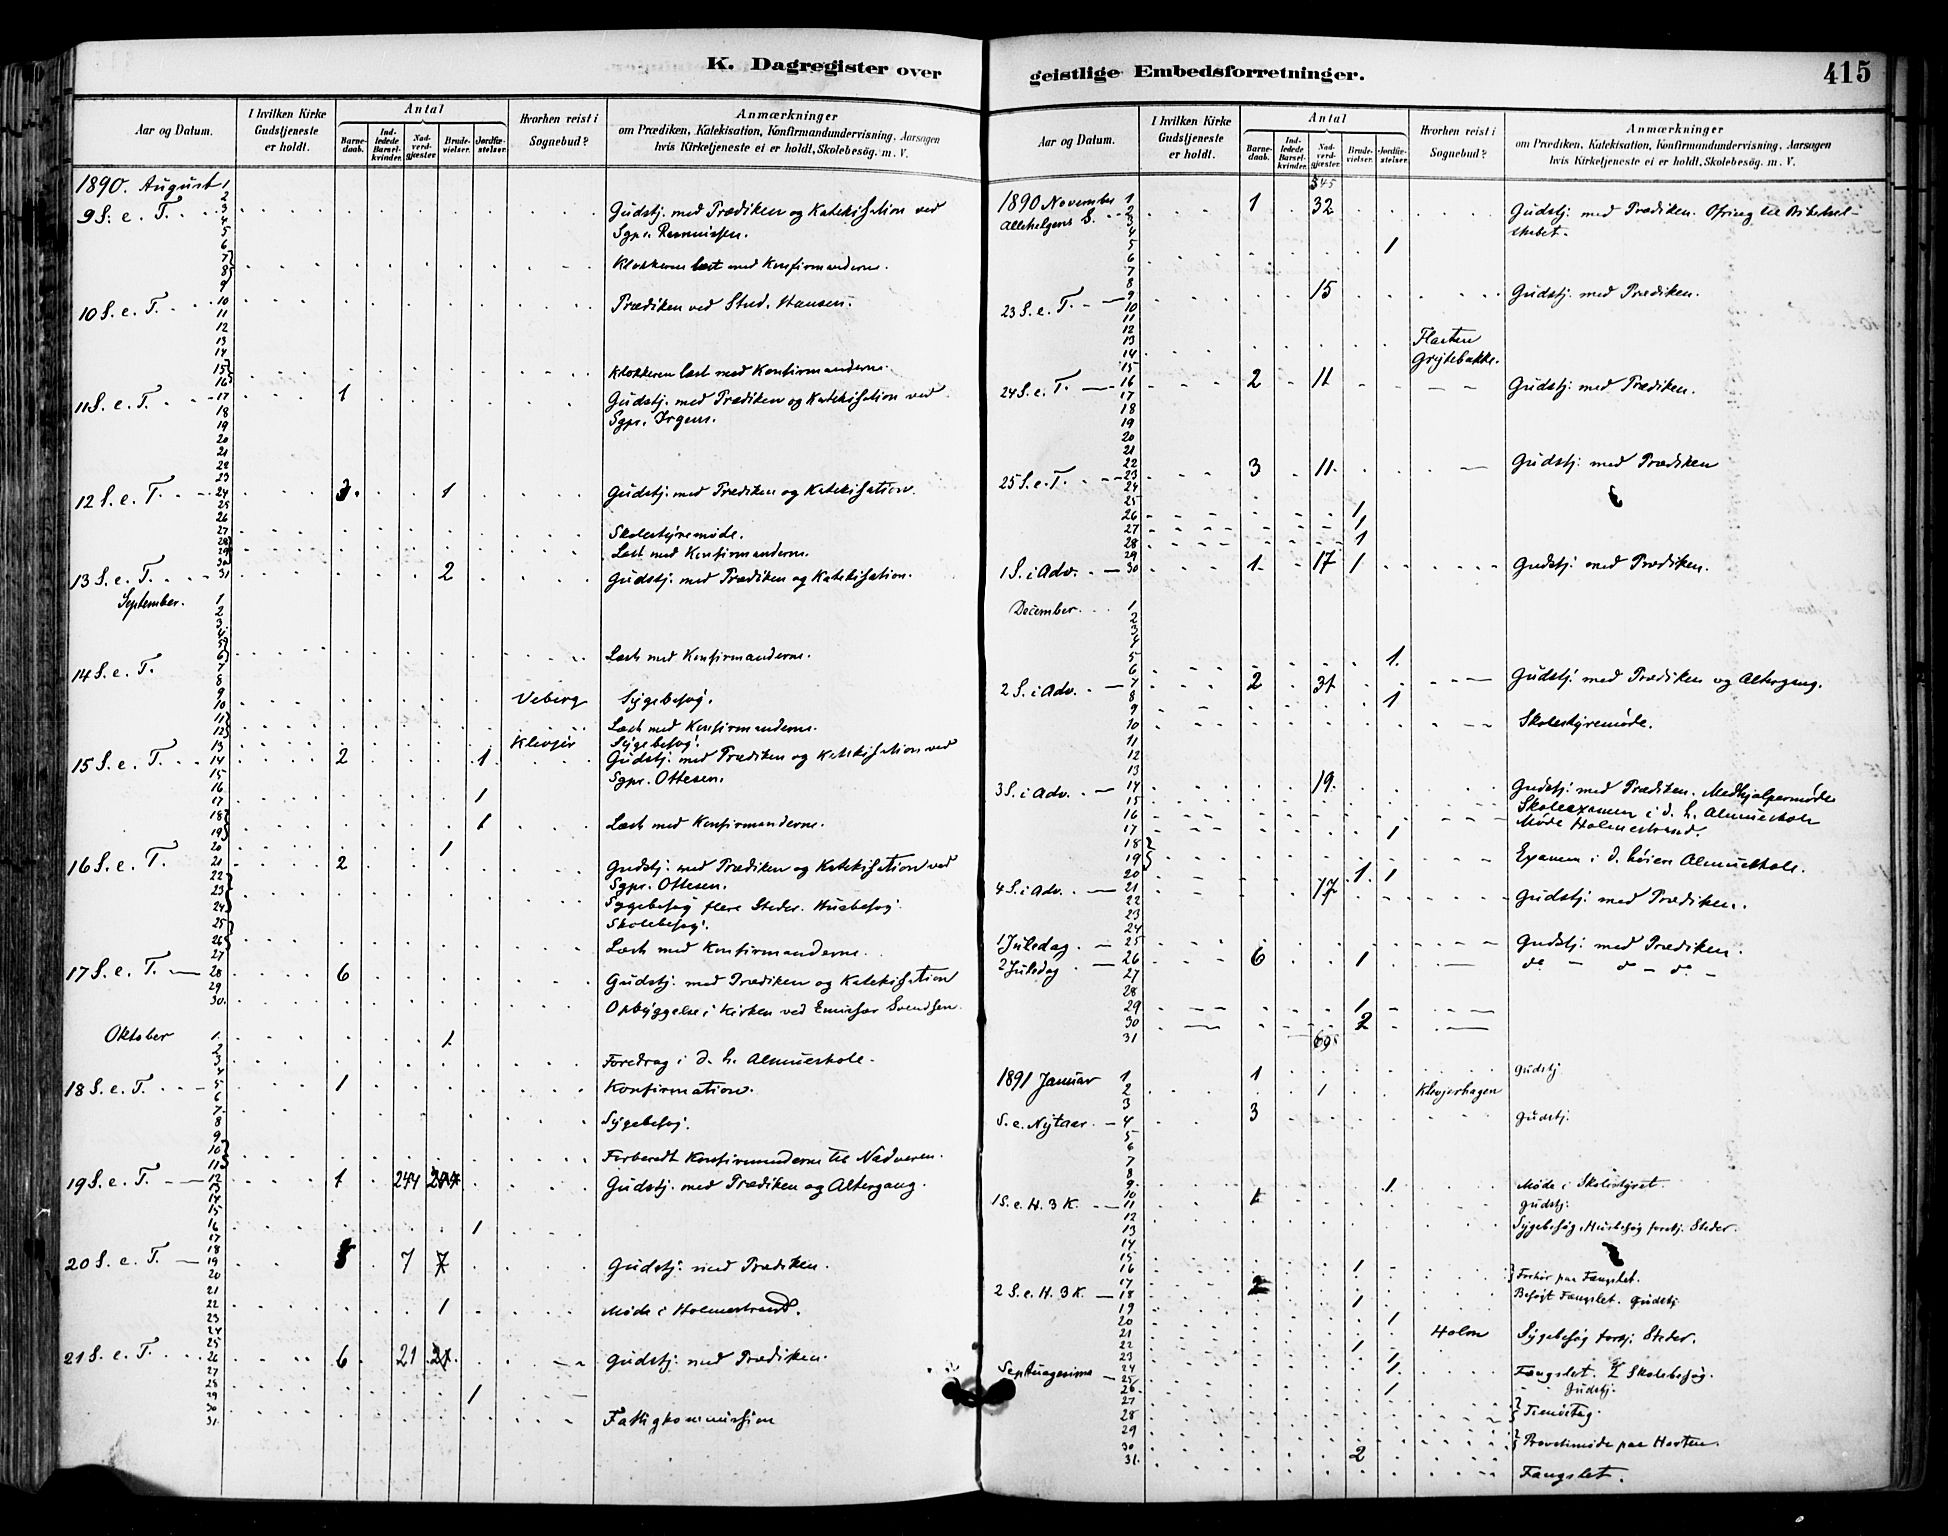 K. Dagregister over
Aar og Datum.
I hvilken Kirke Gudstjeneste er holdt.
Antal
Barnedaab.
Indledede Barselkvinder.
Nadverdgjæster
Brudevielser.
Jordfæstelser.
Hvorhen reist i Sognebud?
Anmærkninger
om Prædiken, Katekisation, Konfirmandundervisning, Aarsagen
hvis Kirketjeneste ei er holdt, Skolebesög. m. V.
1890. August 1
9 S. e. T. 3 Gudstj. med Prædiken og Katekisation ved
Sgpr. Rasmussen.
7 8 Klokkeren læst med Konfirmanderne.
10 S. e. T. 10 Prædiken ved Stud. Hansen.
15 16 Klokkeren læst med Konfirmanderne.
11 S. e. T. 17 1 Gudstj. med Prædiken og Katekisation ved
Sgpr. Irgens.
12 S. e. T. 24 1 Gudstj. med Prædiken og Katekisation.
27 Skolestyremøde.
28 29 Læst med Konfirmanderne.
13 S. e. T. 31 2 Gudstj. med Prædiken og Katekisation.
September. 1
5 6 Læst med Konfirmanderne.
14 S. e. T. 7
Veberg Sygebesøg.
11 12 Læst med Konfirmanderne.
Sygebesøg.
15 S. e. T. 14 2 1 Gudstj. med Prædiken og Katekisation ved
Sgpr. Ottesen.
17 1
18 19 1 Læst med Konfirmanderne.
20 1
16 S. e. T. 21 2 Gudstj. med Prædiken og Katekisation ved
Sgpr. Ottesen.
Sygebesøg flere Steder. Husbesøg.
Skolebesøg.
25 26 Læst med Konfirmanderne.
17 S. e. T. 28 6 Gudstj. med Prædiken og Katekisation
30. Opbyggelse i Kirken ved Emissær Svendsen.
Oktober 1. 1.
3 Foredrag i d. h. Almueskole.
18 S. e. T. 5 1 Konfirmation.
8 Sygebesøg.
10 11 Forberedt Konfirmanderne til Nadveren.
19 S. e. T. 12 1 244 Gudstj. med Prædiken og Altergang.
16 1
20 S. e. T. 19 7 Gudstj. med Prædiken.
22 1 Møde i Holmestrand.
21 S. e. T. 26 6 21 Gudstj. med Prædiken.
29 1
31. Fattigkommission
geistlige Embedsforretninger.
415
Aar og Datum.
I hvilken Kirke Gudstjeneste er holdt.
Antal
Barnedaab.
Indledede Barselkvinder.
Nadverdgjæster
Brudevielser.
Jordfæstelser.
Hvorhen reist i Sognebud?
Anmærkninger
om Prædiken, Katekisation, Konfirmandundervisning, Aarsagen
hvis Kirketjeneste ei er holdt, Skolebesög. m. V.
545
1890 November 1
Allehelgens S. 2 1 32 Gudstj. med Prædiken. Ofring til Bibelsel-
skabet.
5 1
23 S. e. T. 9 15 Gudstj. med Prædiken.
Grytebakke.
24 S. e. T. 16 2 11 Gudstj. med Prædiken.
25 S. e. T. 23 3 11. Gudstj. med Prædiken
26 1
27 1
28 1
1 S. i Adv. 30 1 17 1 Gudstj. med Prædiken.
December. 1
5 1.
2 S. i Adv. 7 2 31 Gudstj. med Prædiken og Altergang.
8 1
10 Skolestyremøde.
3 S. i Adv. 14 19. Gudstj. med Prædiken. Medhjælpermøde
Skoleexamen i d. h. Almueskole
17 1 Møde Holmestrand.
18 19 Examen i d. høiere Almueskole.
20 1 1
4 S. i Adv. 21 17 Gudstj. med Prædiken.
1 Juledag. 25 Gudstj. med Prædiken.
2 Juledag 26 6 1 do — do — do. —
29 1
30 2
31
1891 Januar 1 1 Gudstj.
2 1 Klevjerhagen
S. e. Nytaar. 4 3 Gudstj.
9 1. Møde i Skolestyret.
1 S. e. H. 3 K. 11 1 Gudstj.
Sygebesøg, Husbesøg forskj. Steder.
15 1
Forhør paa Fængslet.
2 S. e. H. 3 K. 18 2 Besøgt Fængslet. Gudstj.
19 1
20 1
Holm Sygebesøg forskj. Steder.
22 1
23 1. Fængslet. Skolebesøg.
Septuagesima 25 1 Gudstj.
Provstimøde paa Horten.
30 2
31. Fængslet.